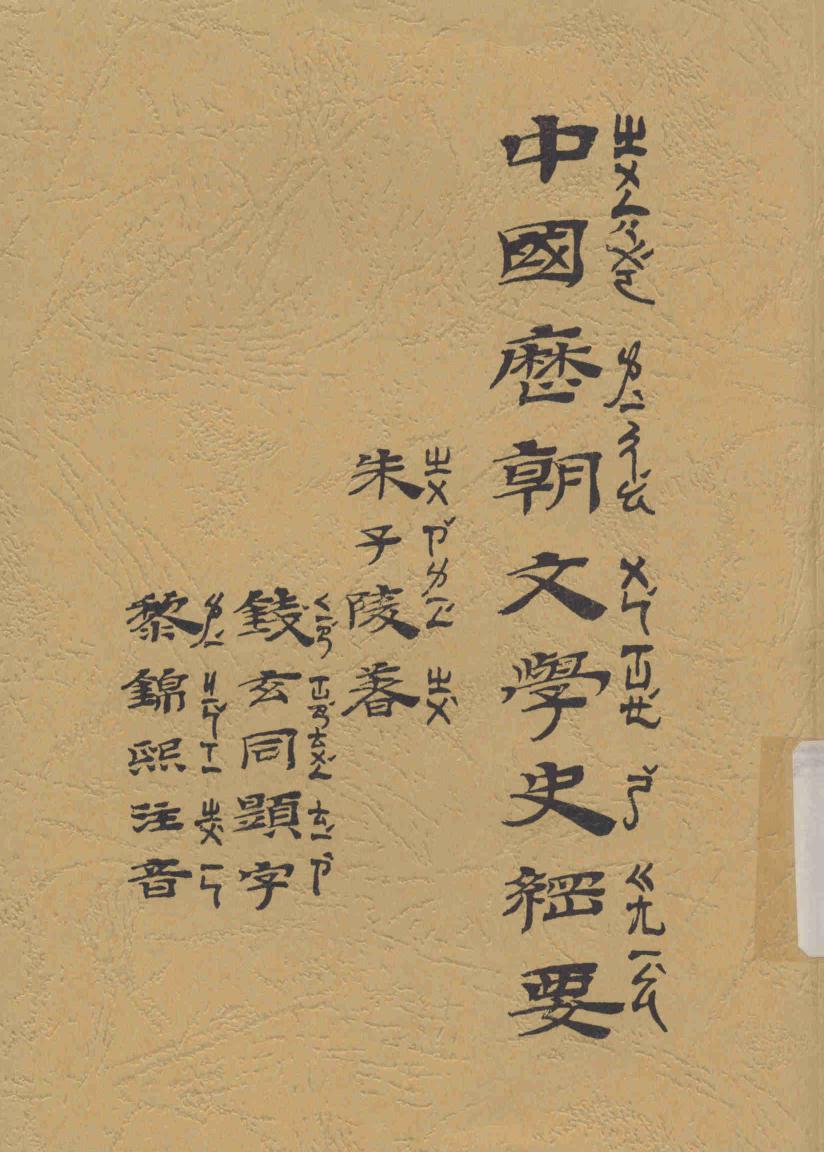 中國歷朝文學史綱要
ㄓㄨㄥㄍㄨㄛˊ ㄌㄧˋㄔㄠˊ ㄨㄣˊㄒㄩㄝˊ ㄕˇ ㄍㄤㄧㄠˋ
朱子陵著
ㄓㄨ ㄗˇㄌㄧㄥˊ ㄓㄨˋ
錢玄同題字
ㄑㄧㄢˊ ㄒㄩㄢˊㄊㄨㄥˊ ㄊㄧˊㄗˋ
黎錦熙注音
ㄌㄧˊ ㄐㄧㄣˇㄒㄧ ㄓㄨˋㄧㄣ